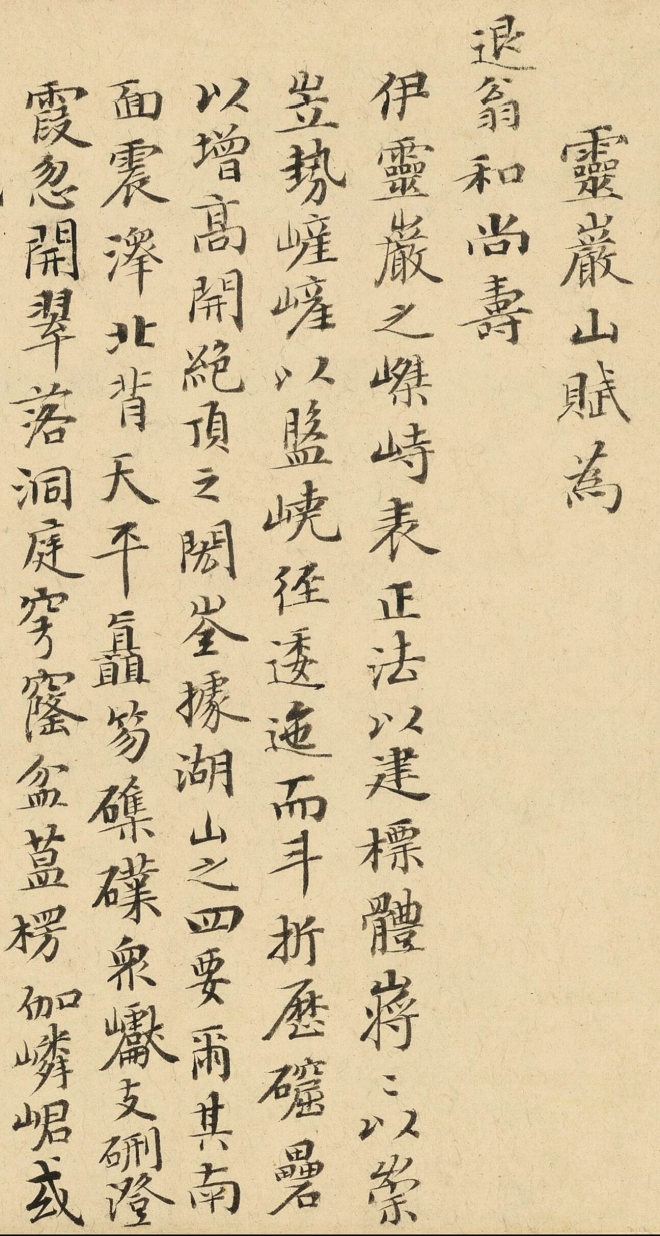 靈巖山賦為
退翁和尚壽
伊靈巖之嵥峙表正法以建標體㟻〻以崇
岦勢嵼嵼以盬嶢徑逶迤而斗折歷礭礨
以增高開絕頂之閎峑據湖山之四要爾其南
面震澤北背天平聶笏礁磼眾巘支硎澄
霞忽開翠落洞庭穹窿盆葢楞伽嶙峮或